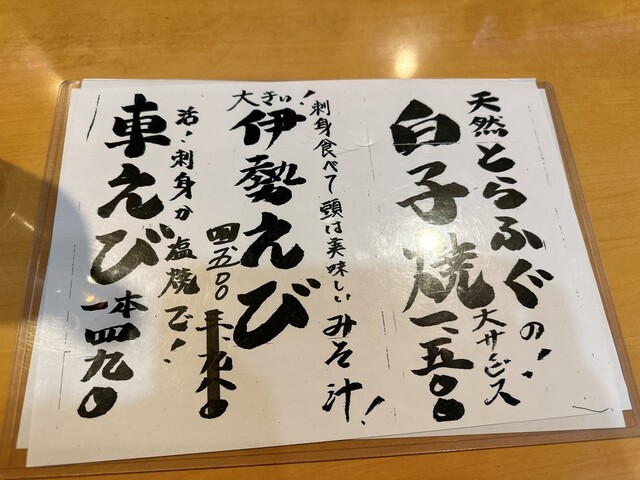 天然とらふぐの!
白子焼 一、五〇〇
大サービス
刺身食べて頭は美味しいみそ汁!
大きい!
伊勢えび
四五〇〇
三、九八〇
活!刺身か塩焼で!
車えび
一本四九〇